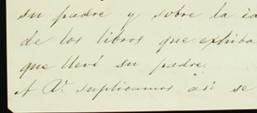 su padre y sobre la
de los libros que
que llevó su padre.
A V. suplicamos así se